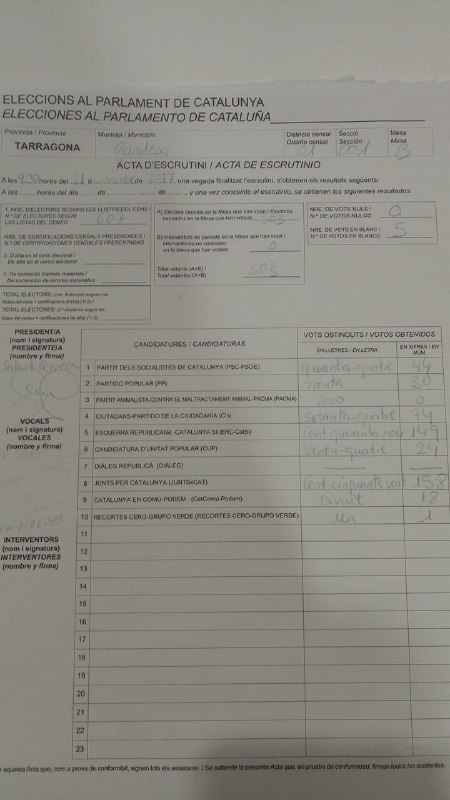 ELECCIONS AL PARLAMENT DE CATALUNYA
ELECCIONES AL PARLAMENTO DE CATALUÑA
Província / Provincia
Municipi / Municipio
Districte censal
Distrito censal
Secció
Sección
Mesa
Mesa
TARRAGONA
Gandesa
01
B
ACTA D'ESCRUTINI / ACTA DE ESCRUTINIO
A les hores del 21 d de 2017, una vegada finalitzat l'escrutini, s'obtenen els resultats següents:
A las horas del día de de , y una vez concluido el escrutinio, se obtienen los siguientes resultados:
1. NRE. D'ELECTORS SEGONS LES LLISTES DEL CENS /
N.º DE ELECTORES SEGÚN
LAS LISTAS DEL CENSO
NRE. DE CERTIFICACIONS CENSALS PRESENTADES /
N.º DE CERTIFICACIONES CENSALES PRESENTADAS
2. D'alta en el cens electoral /
De alta en el censo electoral
3. De correcció d'errors materials /
De corrección de errores materiales:
TOTAL ELECTORS:
TOTAL ELECTORES:
A) Electors censats en la Mesa que han votat / Electores
censados en la Mesa que han votado
B) Interventors no censats en la Mesa que han votat /
Interventores no censados
en la Mesa que han votado
0
Total votants (A+B) /
Total votantes (A+B)
503
NRE. DE VOTS NULS /
N.º DE VOTOS NULOS
0
NRE. DE VOTS EN BLANC /
N.º DE VOTOS EN BLANCO
5
PRESIDENTIA
(nom i signatura)
PRESIDENTEIA
(nombre y firma)
VOCALS
(nom i signatura)
VOCALES
(nombre y firma)
INTERVENTORS
(nom i signatura)
INTERVENTORES
(nombre y firma)
CANDIDATURES / CANDIDATURAS
VOTS OBTINGUTS / VOTOS OBTENIDOS
EN LLETRES / EN LETRA
EN XIFRES / EN NÚM.
1 PARTIT DELS SOCIALISTES DE CATALUNYA (PSC-PSOE) quaranta-quatre 44
2 PARTIDO POPULAR (PP) trenta 30
3 PARTIT ANIMALISTA CONTRA EL MALTRACTAMENT ANIMAL-PACMA (PACMA) zero 0
4 CIUTADANS-PARTIDO DE LA CIUDADANÍA (Cs) setanta-quatre 74
5 ESQUERRA REPUBLICANA -CATALUNYA SÍ (ERC-CatSí) cent quaranta nou 149
6 CANDIDATURA D'UNITAT POPULAR (CUP) vint-i-quatre 24
7 DIÀLEG REPUBLICÀ (DIÀLEG)
8 JUNTS PER CATALUNYA (JUNTSxCAT) Cent cinquanta vuit 158
9 CATALUNYA EN COMÚ-PODEM (CatComú-Podem) Divuit 18
10 RECORTES CERO-GRUPO VERDE (RECORTES CERO-GRUPO VERDE) un 1
11
12
13
14
15
16
17
18
19
20
21
22
23
aquesta Acta que, com a prova de conformitat, signen tots els assistents. / Se extiende la presente Acta que, en prueba de conformidad, firman todos los asistentes.